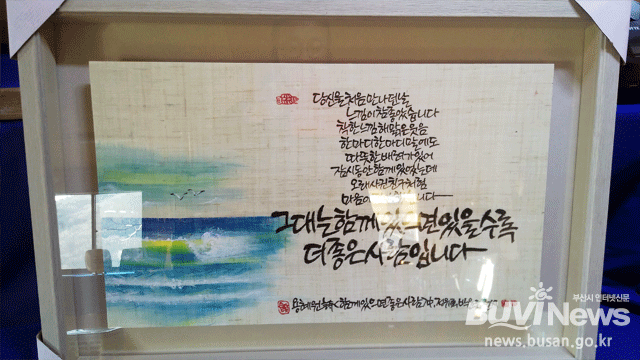 당신을 처음 만나던날
느낌이 참 좋았습니다
착한느낌 해맑은웃음
한마디 한마디 말에도
따뜻한 배려가 있어
잠시동안 함께 있었는데
오래사귄 친구처럼
마음이
그대는 함께 있을수록
더 좋은 사람입니다
용혜원 함께있으면 좋은사람
부산시 인터넷신문
BUVI News
news.busan.go.kr